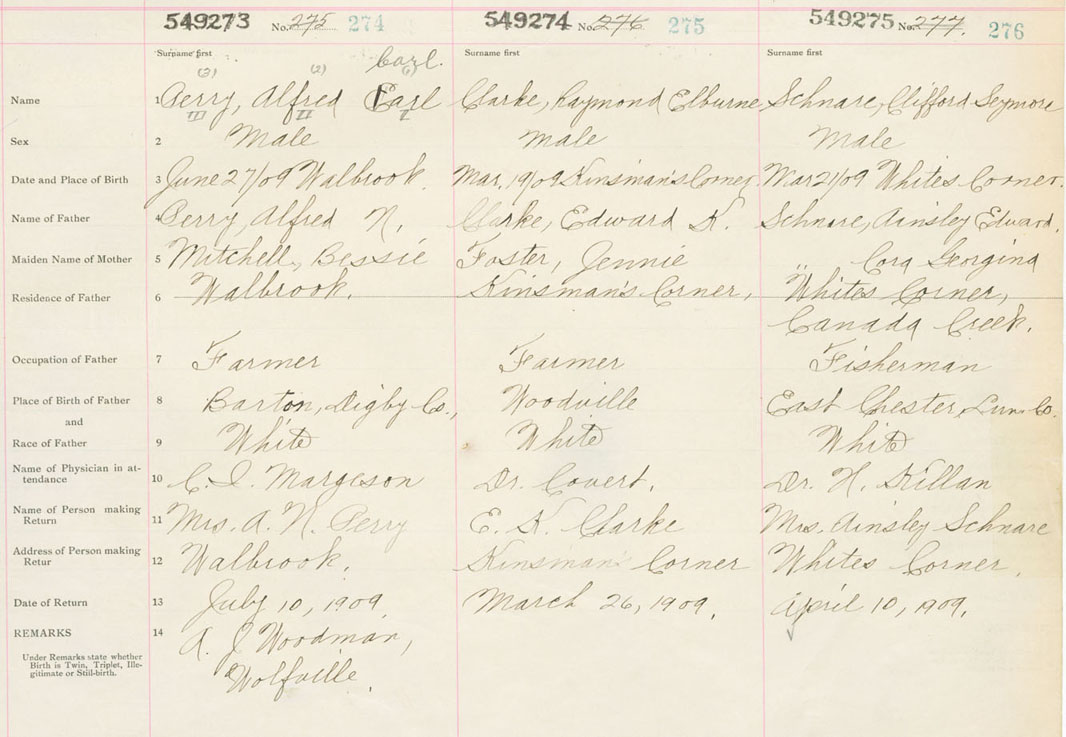 549273 No. 275 274 549274 No. 276 275 549275 No. 277 276
Surname first Surname first Surname first
Carl.
(3) (2) (1)
Name 1 Perry, Alfred Earl Clarke, Raymond Elburne Schnare, Clifford Seymore
III II I
Sex 2 Male Male Male
Date and Place of Birth 3 June 27/09 Walbrook. Mar. 19/09 Kinsman's Corner. Mar 21/09 Whites Corner.
Name of Father 4 Perry, Alfred N. Clarke, Edward K. Schnare, Ainsley Edward.
Maiden Name of Mother 5 Mitchell, Bessie Foster, Jennie " Cora Georgina
Residence of Father 6 Walbrook. Kinsman's Corner, Whites Corner,
Canada Creek.
Occupation of Father 7 Farmer Farmer Fisherman
Place of Birth of Father 8 Barton, Digby Co., Woodville East Chester, Lun. Co.
and
Race of Father 9 White White White
Name of Physician in at-
tendance 10 C. I. Margeson Dr. Covert. Dr. H. Killan
Name of Person making
Return 11 Mrs. A. N. Perry E. K. Clarke Mrs. Ainsley Schnare
Address of Person making
Retur 12 Walbrook. Kinsman's Corner Whites Corner.
Date of Return 13 July 10, 1909 March 26, 1909. April 10, 1909.
REMARKS 14 A. J. Woodman,
Wolfville.
Under Remarks state whether
Birth is Twin, Triplet, Ille-
gitimate or Still-birth.